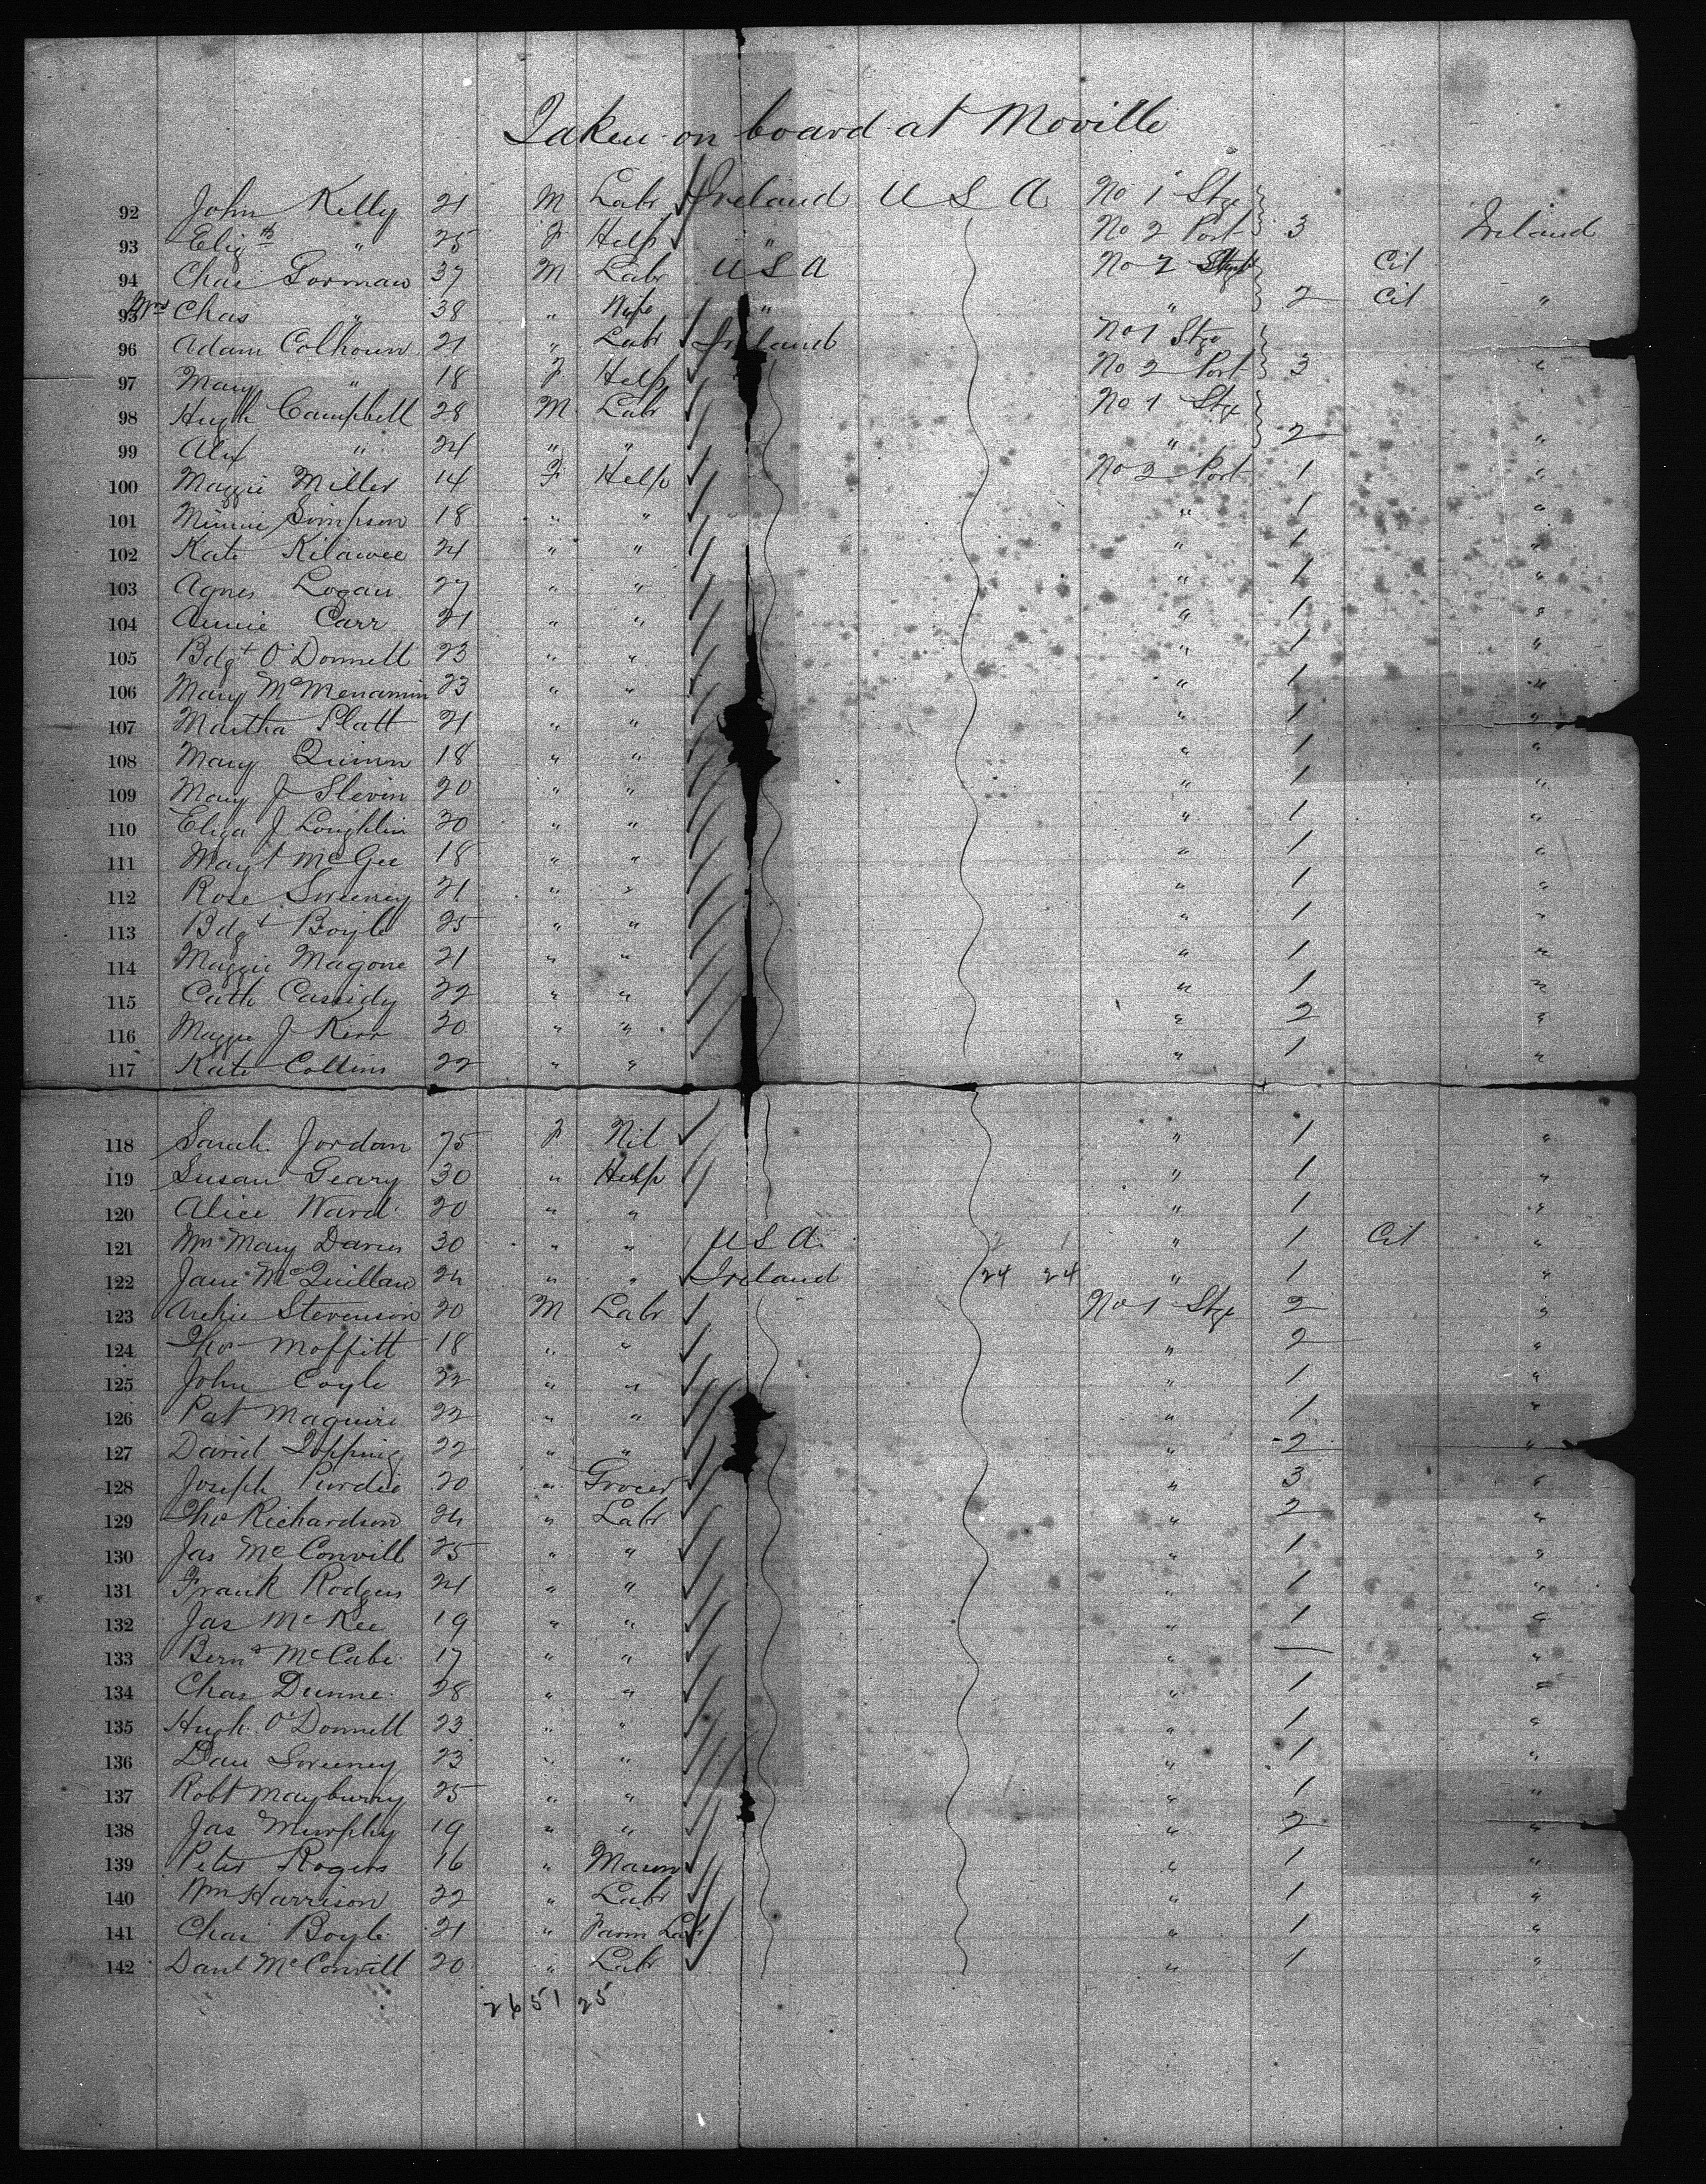 Taken on board at Moville
92 John Kelly 21 M Labr Ireland U S A No 1 Stge
93 Eliz th " 25 F Help " No 2 Port 3 Ireland
94 Chas Gorman 37 M Labr U S A No 2 Cit
95 Mrs Chas " 38 " Wife " " 2 Cit "
96 Adam Colhoun 21 " Labr Ireland No 1 Stge
97 Mary " 18 F Help No 2 Port 3 "
98 Hugh Campbell 28 M Labr No 1 Stge
99 Alex " 24 " " " 2 "
100 Maggie Miller 14 F Help No 2 Port 1 "
101 Minnie Simpson 18 " " " 1 "
102 Kate 24 " " " 1 "
103 Agnes Logan 27 " " " 1 "
104 Annie Carr 21 " " " 1 "
105 Bdgt O'Donnell 23 " " " 1 "
106 Mary McMenamin 23 " " " 1 "
107 Martha Platt 21 " " " 1 "
108 Mary Quinn 18 " " " 1 "
109 Mary J Slevin 20 " " " 1 "
110 Eliza J Loughlin 30 " " " 1 "
111 Magt McGee 18 " " " 1 "
112 Rose Sweeney 21 " " " 1 "
113 Bdgt Boyle 25 " " " 1 "
114 Maggie Magone 21 " " " 1 "
115 Cath Cassidy 22 " " " 1 "
116 Maggie J Kerr 30 " " " 2 "
117 Kate Collins 22 " " " 1 "
118 Sarah Jordan 75 F Nil " 1 "
119 Susan Geary 30 " Help " 1 "
120 Alice Ward 20 " " " 1 "
121 Mrs Mary Davis 30 " " U S A " 1 Cit "
122 Jane McQuillan 24 " " Ireland 24 24 " 1 "
123 Archie Stevenson 20 M Labr No 1 Stge 2 "
124 Thos Moffitt 18 " " " 2 "
125 John Coyle 32 " " " 1 "
126 Pat Maguire 22 " " " 1 "
127 David Topping 22 " " " 2 "
128 Joseph Purdie 20 " Grocer " 3 "
129 Thos Richardson 24 " Labr " 2 "
130 Jas McConvill 25 " " " 1 "
131 Frank Rodgers 21 " " " 1 "
132 Jas McKee 19 " " " 1 "
133 Bernd McCabe 17 " " " — "
134 Chas Dunne 28 " " " 1 "
135 Hugh O'Donnell 23 " " " 1 "
136 Dan Sweeney 23 " " " 1 "
137 Robt Mayburry 25 " " " 1 "
138 Jas Murphy 19 " " " 2 "
139 Peter Rogers 16 " Mason " 1 "
140 Wm Harrison 22 " Labr " 1 "
141 Chas Boyle 21 " Farm Labr " 1 "
142 Danl McConvill 20 " Labr " 1 "
26 51 25